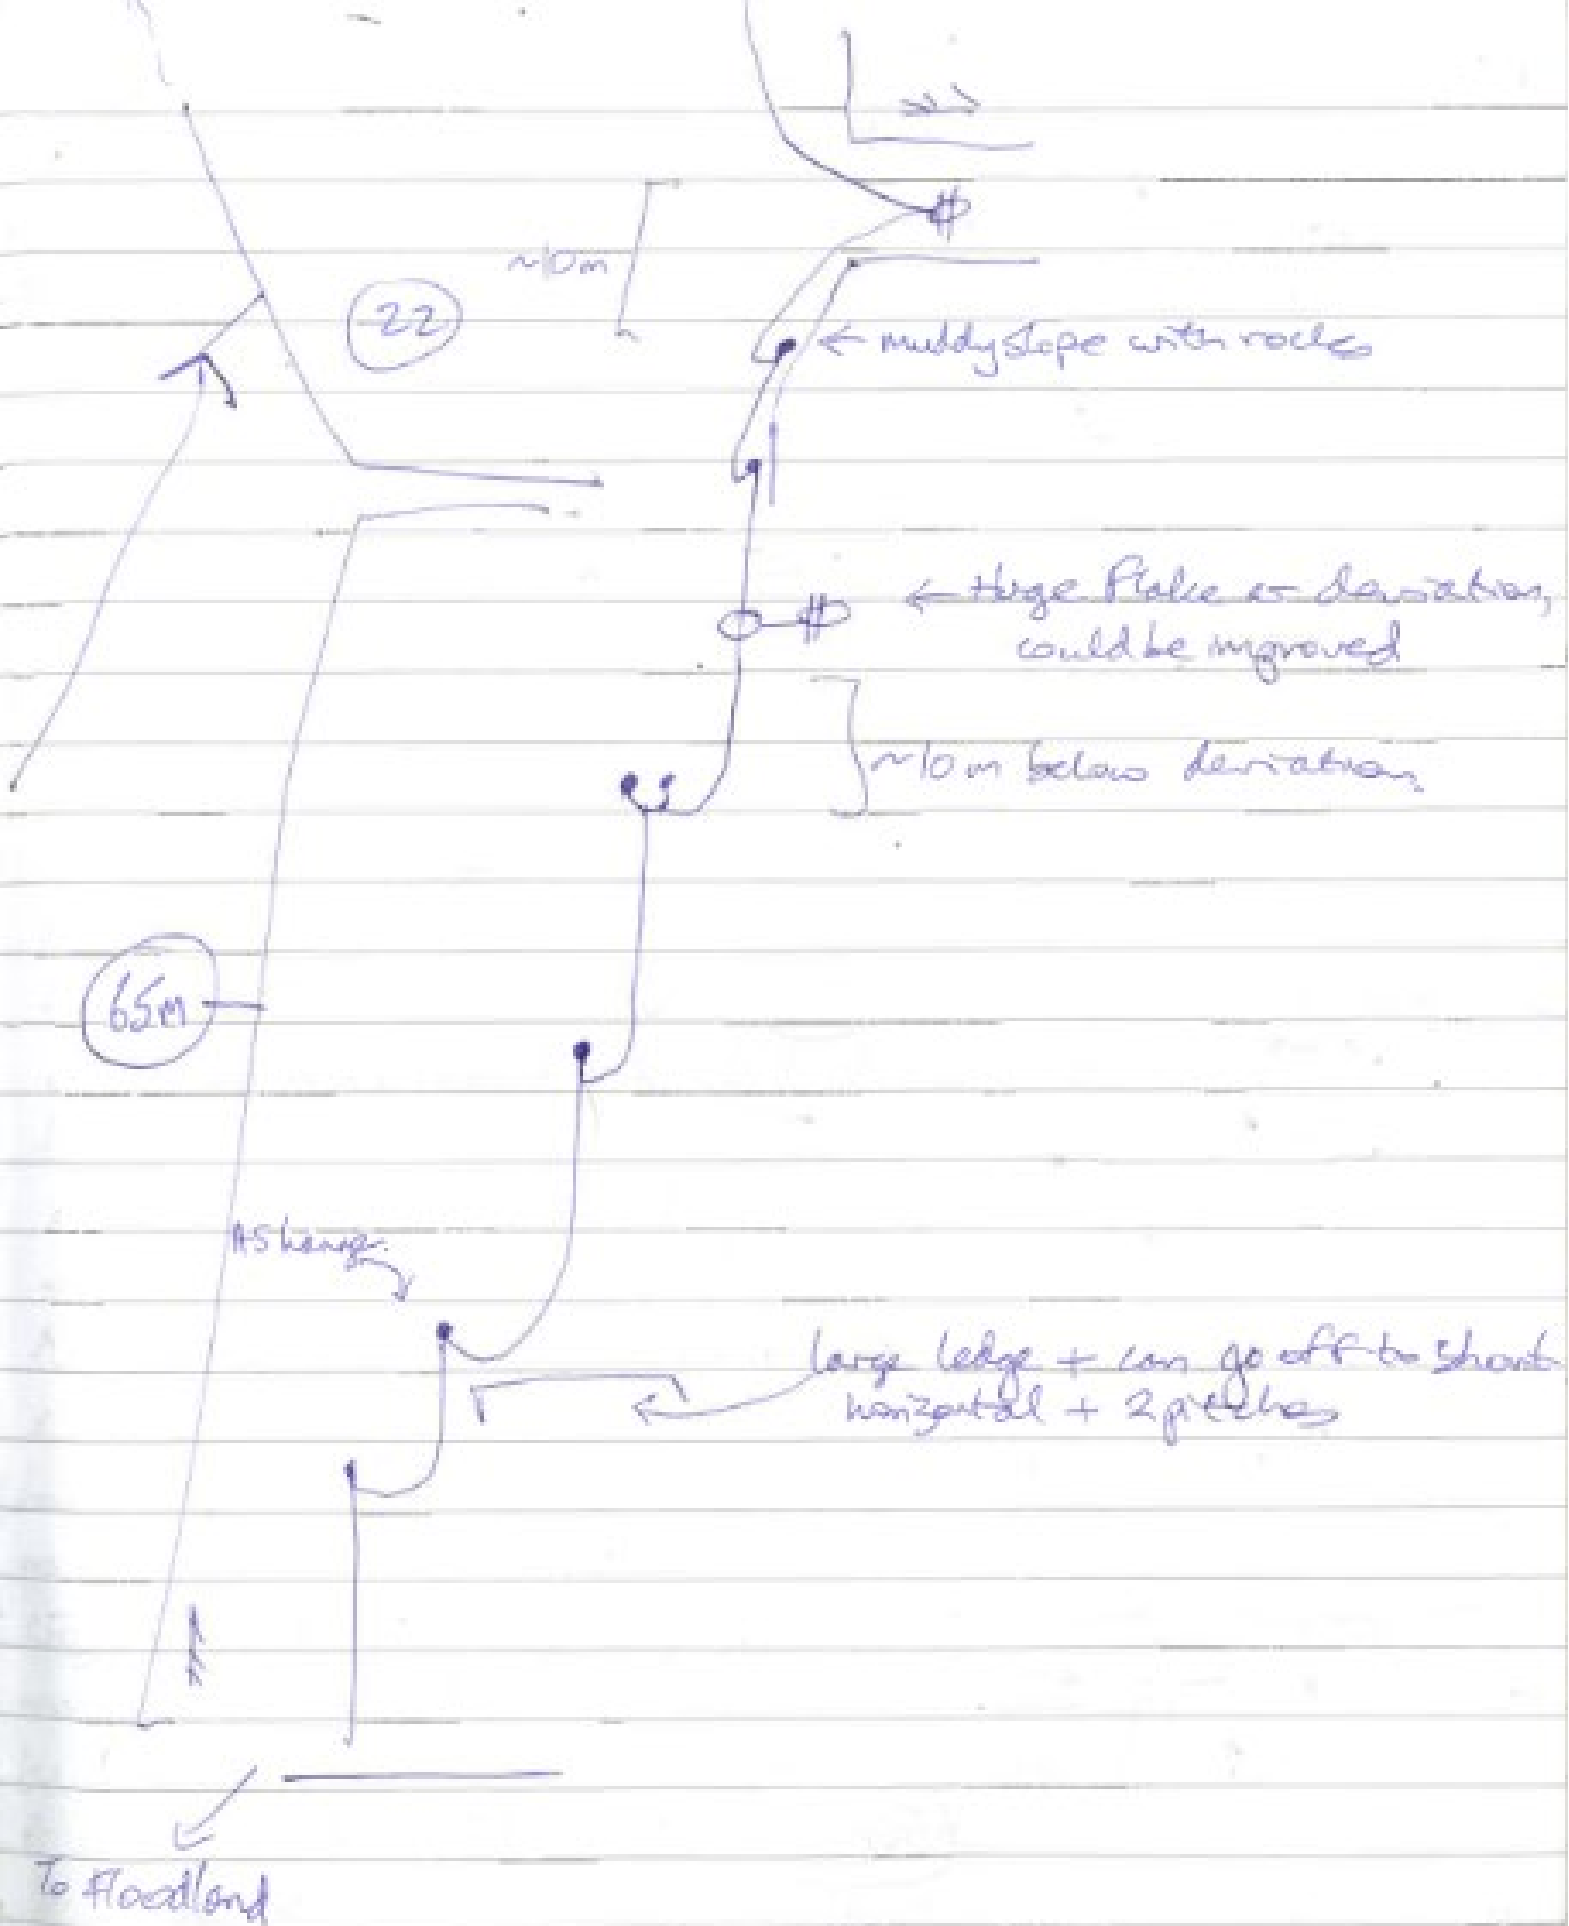 ~10m
22
← muddy slope with rocks
← Huge Flake or deviation,
could be improved
~10m below deviation
65m
AS hanger
large ledge + can go off to short
horizontal + 2 pitches
To Floodland